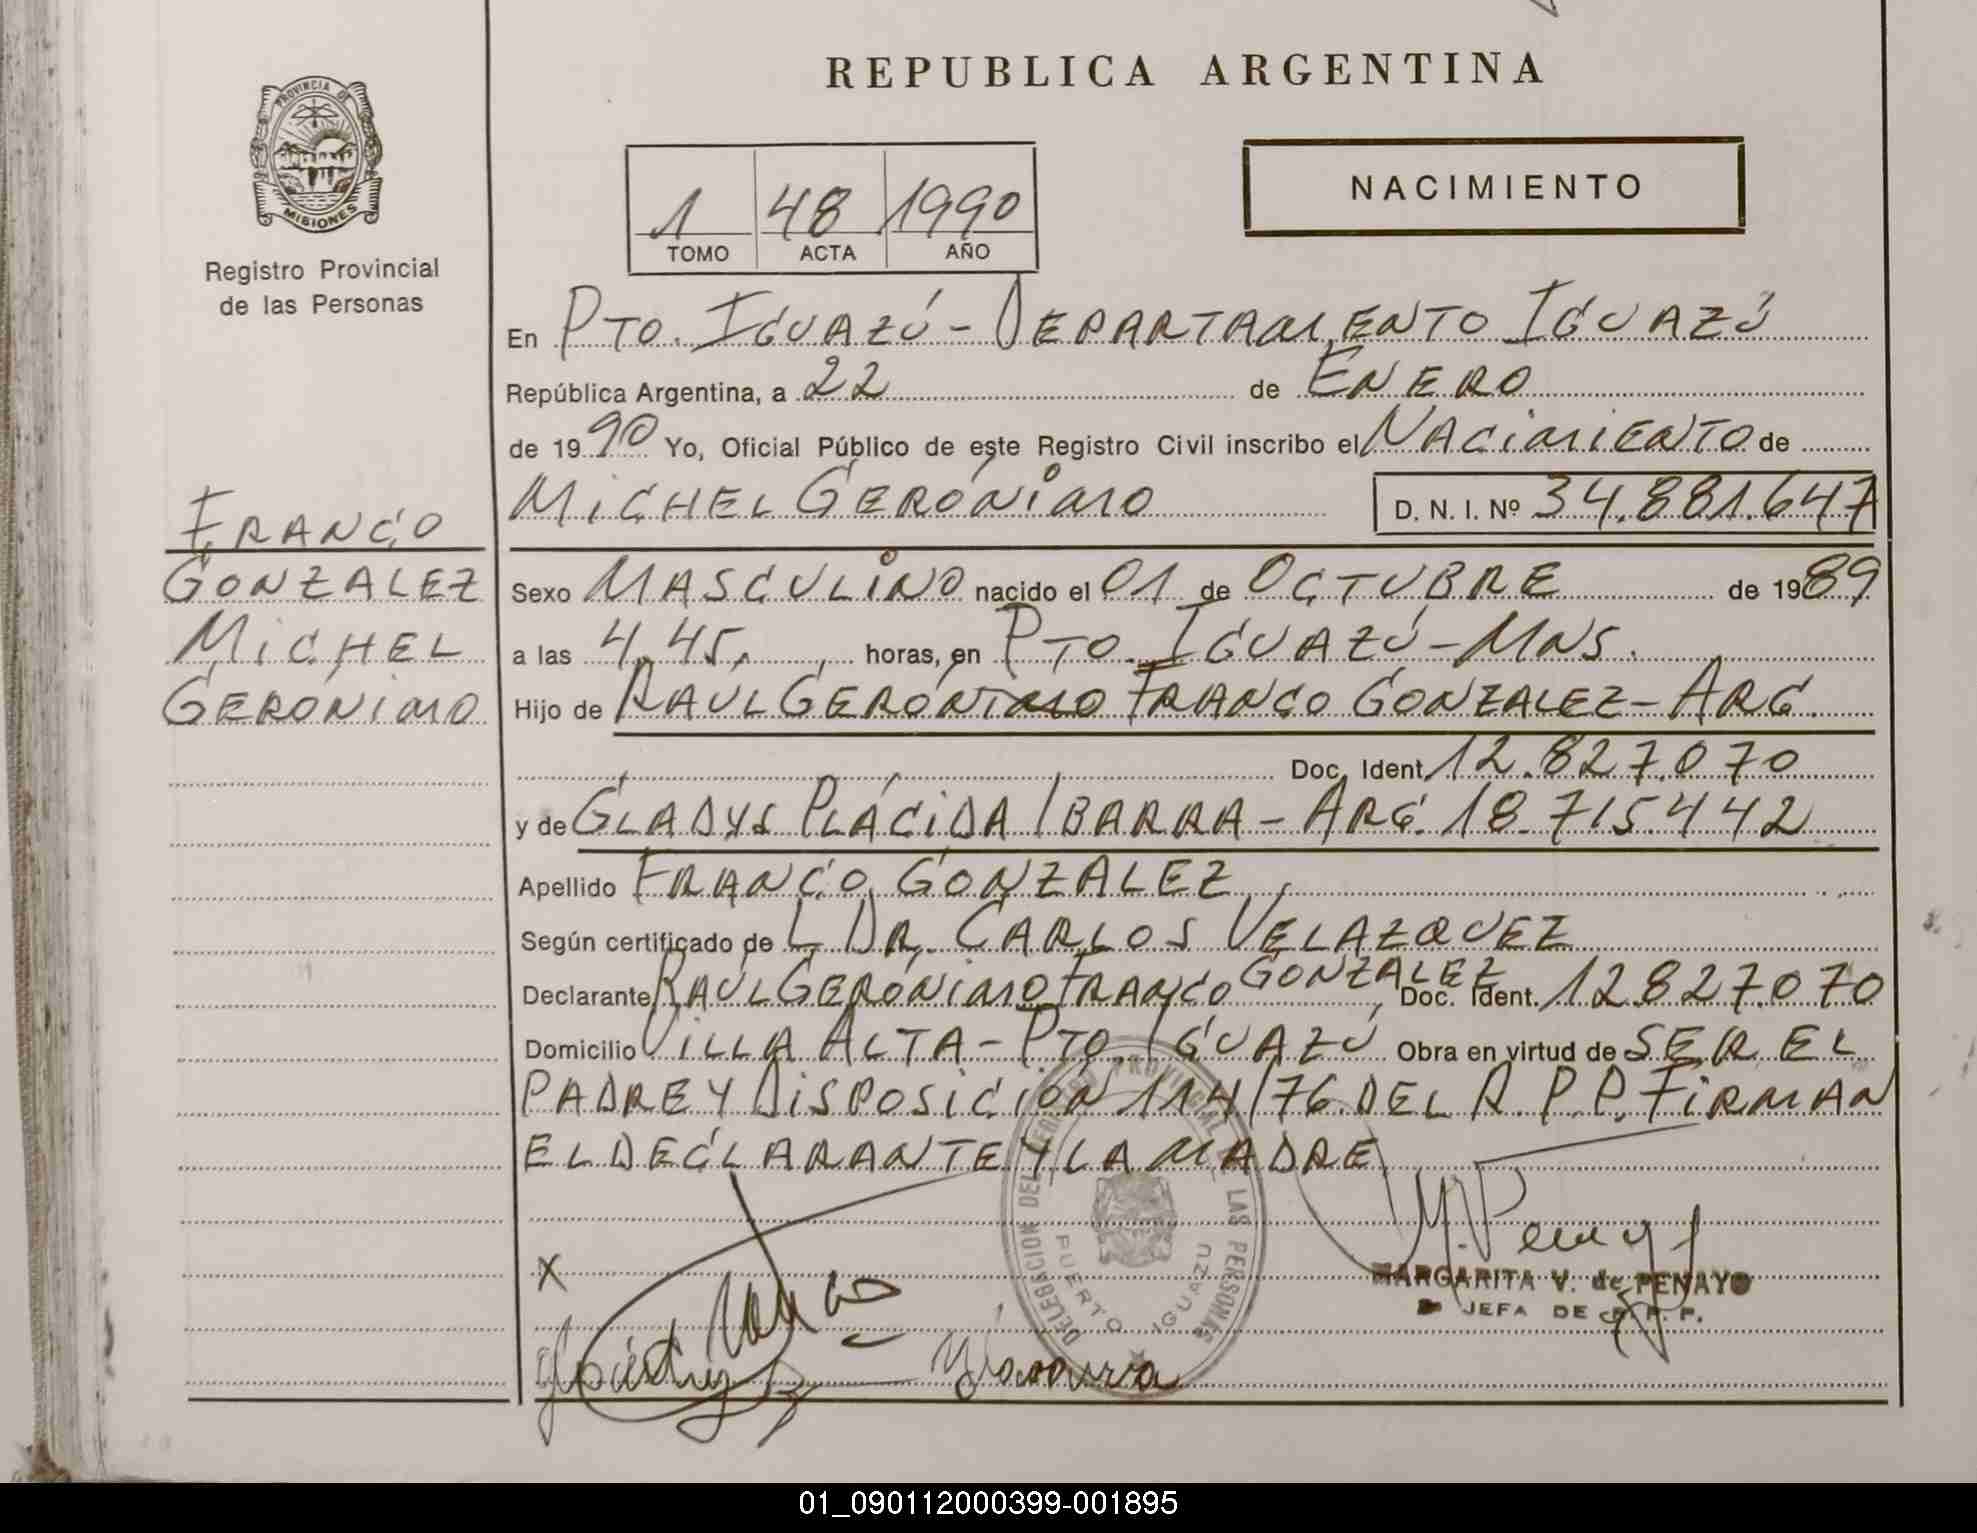 REPUBLICA ARGENTINA
PROVINCIA DE
MISIONES
Registro Provincial
de las Personas
NACIMIENTO
1 48 1990
TOMO ACTA AÑO
En PTO. IGUAZÚ - DEPARTAMENTO IGUAZÚ
República Argentina, a 22 de ENERO
de 1990 Yo, Oficial Público de este Registro Civil inscribo el NACIMIENTO de
MICHEL GERÓNIMO D. N. I. Nº 34.881.647
FRANCO
GONZALEZ
MICHEL
GERÓNIMO
Sexo MASCULINO nacido el 01 de OCTUBRE de 1989
a las 4,45, horas, en PTO. IGUAZÚ - MNS.
Hijo de RAÚL GERÓNIMO FRANCO GONZALEZ - ARG.
Doc. Ident. 12.827.070
y de GLADYS PLÁCIDA IBARRA - ARG. 18.715.442
Apellido FRANCO GONZALEZ
Según certificado de L DR. CARLOS VELAZQUEZ
Declarante RAÚL GERÓNIMO FRANCO GONZALEZ, Doc. Ident. 12827.070
Domicilio VILLA ALTA - PTO. IGUAZÚ Obra en virtud de SER EL
PADRE Y DISPOSICIÓN 114/76 DEL R.P.P. FIRMAN
EL DECLARANTE Y LA MADRE
DELEGACION DEL REGISTRO PROVINCIAL DE LAS PERSONAS
PUERTO IGUAZU
X
M. Penayo
MARGARITA V. de PENAYO
JEFA DE R. P. P.
01_090112000399-001895